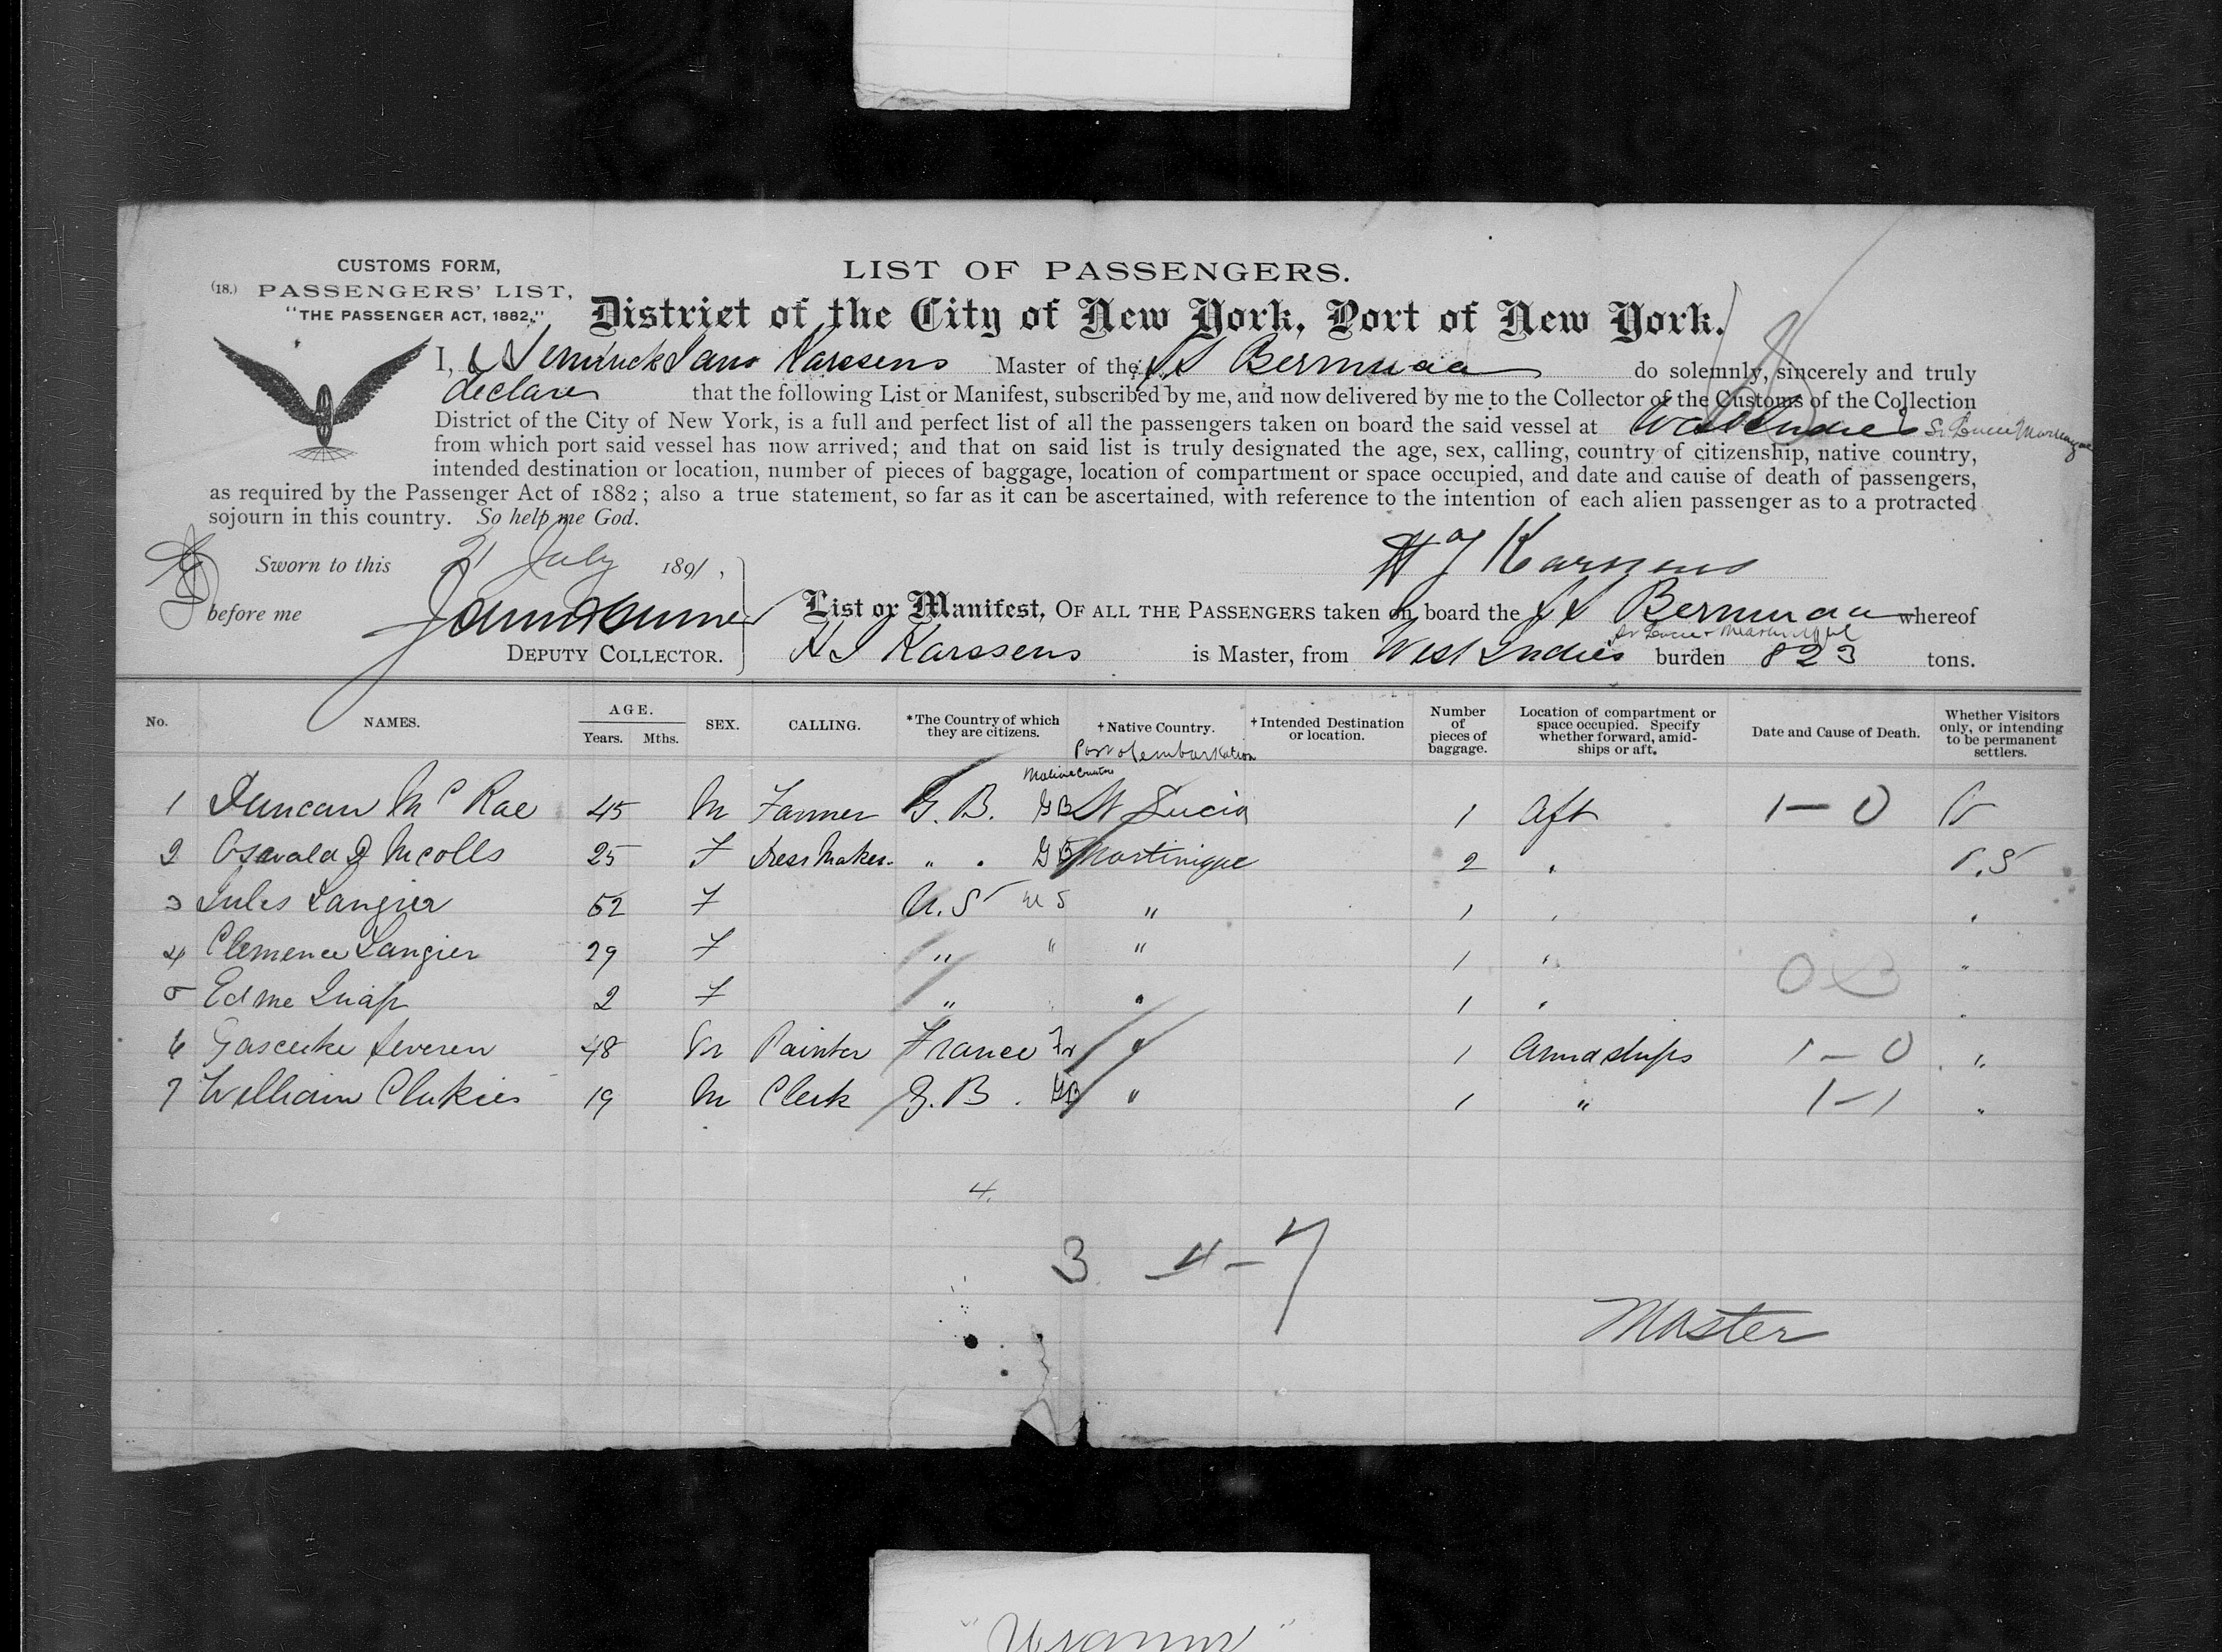 CUSTOMS FORM,
(18.) PASSENGERS' LIST,
"THE PASSENGER ACT, 1882."
LIST OF PASSENGERS.
District of the City of New York, Port of New York.
I, Karssens Master of the SS Bermuda do solemnly, sincerely and truly
declare that the following List or Manifest, subscribed by me, and now delivered by me to the Collector of the Customs of the Collection
District of the City of New York, is a full and perfect list of all the passengers taken on board the said vessel at West Indies
from which port said vessel has now arrived; and that on said list is truly designated the age, sex, calling, country of citizenship, native country,
intended destination or location, number of pieces of baggage, location of compartment or space occupied, and date and cause of death of passengers,
as required by the Passenger Act of 1882; also a true statement, so far as it can be ascertained, with reference to the intention of each alien passenger as to a protracted
sojourn in this country. So help me God.
Sworn to this 21 July 1891,
H J Karssens
before me
DEPUTY COLLECTOR.
List or Manifest, OF ALL THE PASSENGERS taken on board the SS Bermuda whereof
H J Karssens is Master, from West Indies burden 823 tons.
No. NAMES. AGE. Years. Mths. SEX. CALLING. *The Country of which they are citizens. †Native Country. †Intended Destination or location. Number of pieces of baggage. Location of compartment or space occupied. Specify whether forward, amidships or aft. Date and Cause of Death. Whether Visitors only, or intending to be permanent settlers.
Port of embarkation
Native Country
1 Duncan McRae 45 M Farmer G. B. GB St Lucia 1 Aft 1-0 V
2 Oswald D Nicolls 25 F Dress Maker " . GB Martinique 2 " P.S
3 Jules Langier 52 F U.S US " 1 " "
4 Clemence Langier 29 F " " " 1 " "
5 Edme 2 F " " 1 " "
6 Severen 48 M Painter France Fr " 1 Amidships 1-0 "
7 William 19 M Clerk G. B. GB " 1 " 1-1 "
4.
3 4-7
Master